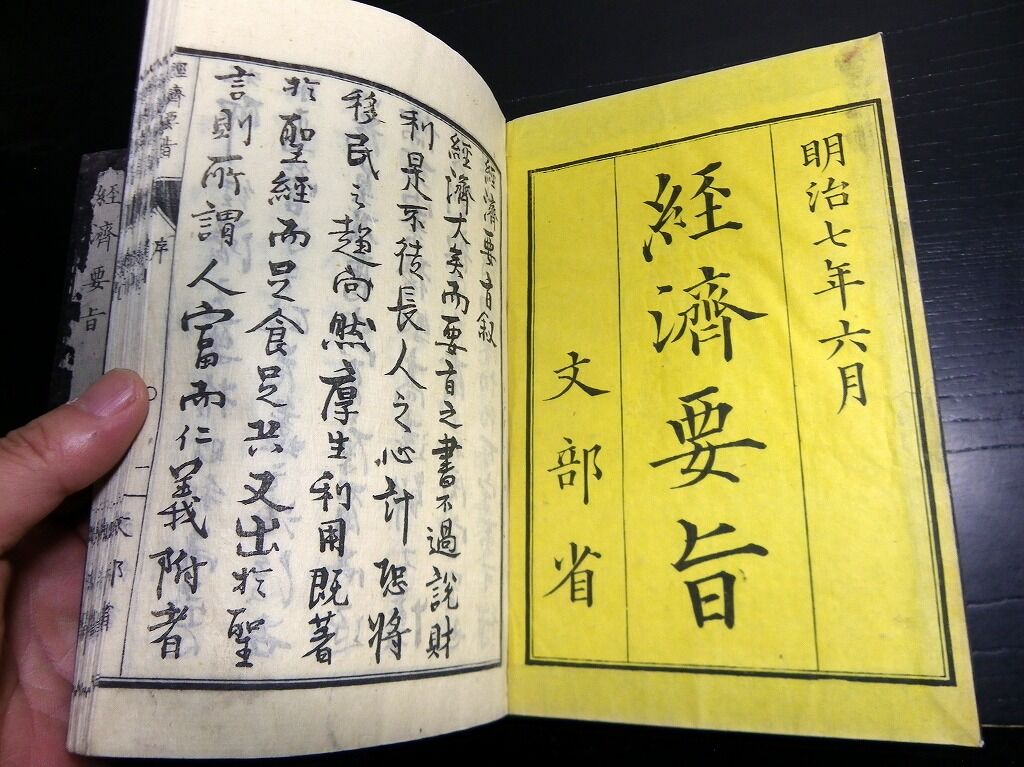 明治七年六月
經濟要旨
文部省
經濟要旨敘
經濟大矣而要旨之書不過說財
利是不徒長人之心計恐將
移民之趨向然厚生利用既著
於聖經而足食足兵又出於聖
言則所謂人富而仁義附者
經濟要旨
序
經濟要旨